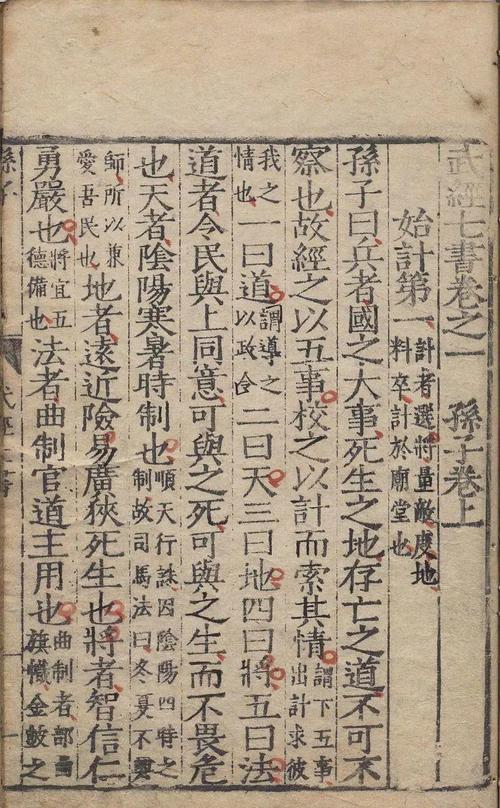 武經七書卷之一 孫子卷上
始計第一 計者選將量敵度地料卒計於廟堂也
孫子曰兵者國之大事死生之地存亡之道不可不
察也故經之以五事校之以計而索其情 謂下五事出計求彼
我之情也 一曰道 謂導之以政令 二曰天三曰地四曰將五曰法
道者令民與上同意可與之死可與之生而不畏危
也天者隂陽寒暑時制也 順天行誅因隂陽四時之制故司馬法曰冬夏不興
師所以兼愛吾民也 地者遠近險易廣狹死生也將者智信仁
勇嚴也 將宜五德備也 法者曲制官道主用也 曲制者部曲旗幟金鼓之
孫子